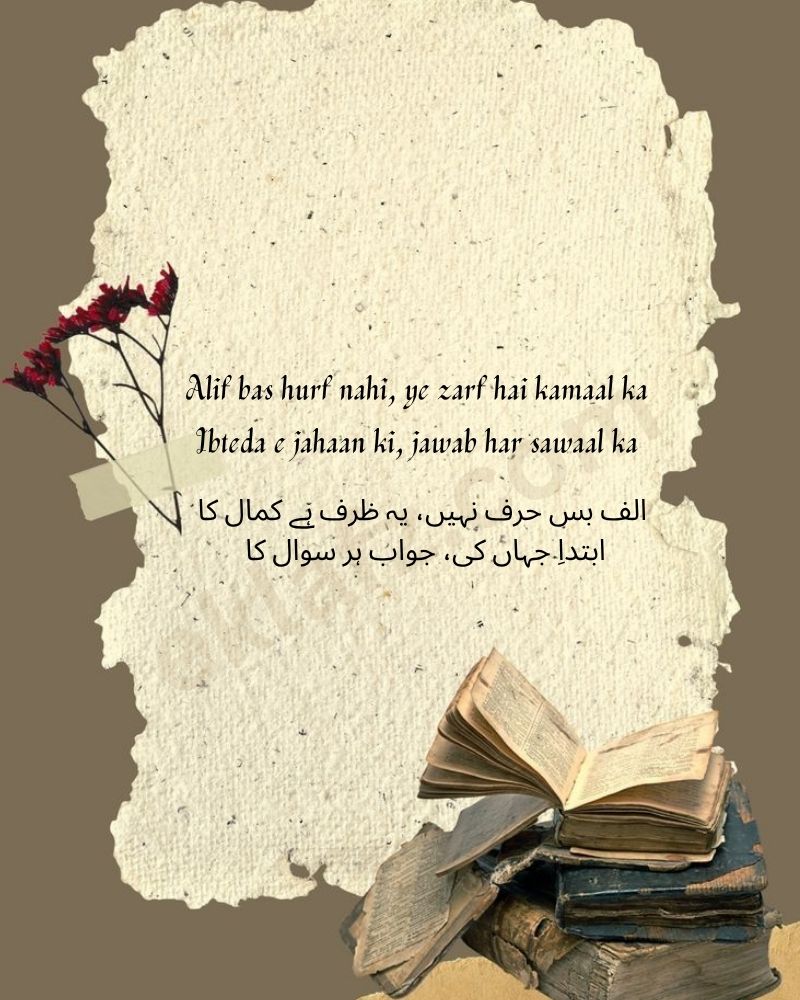 Alif bas hurf nahi, ye zarf hai kamaal ka
Ibteda e jahaan ki, jawab har sawaal ka
الف بس حرف نہیں، یہ ظرف ہے کمال کا
ابتداِ جہاں کی، جواب ہر سوال کا